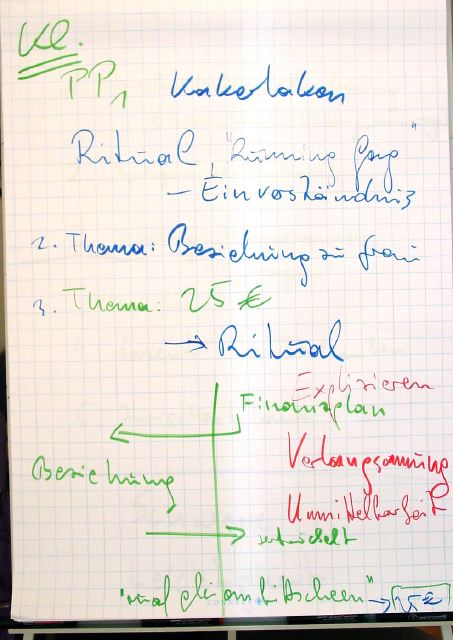 Kl.
PP1 Kakerlaken
Ritual, "Running Gag"
– Einverständnis
2. Thema: Beziehung zu Frau
3. Thema: 25 €
→ Ritual
Explizieren
Finanzplan
Verlangsamung
Beziehung
Unmittelbarkeit
→ 25 €